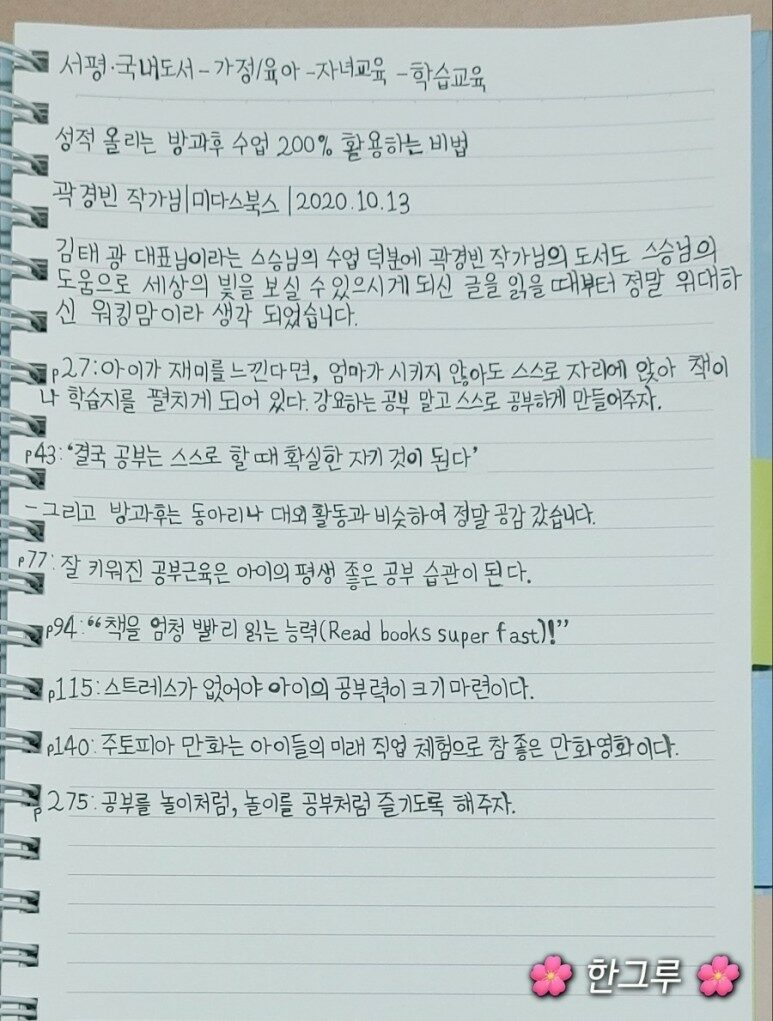 서평·국내도서-가정/육아-자녀교육-학습교육
성적 올리는 방과후 수업 200% 활용하는 비법
곽경빈 작가님|미다스북스|2020.10.13
김태광 대표님이라는 스승님의 수업 덕분에 곽경빈 작가님의 도서도 스승님의
도움으로 세상의 빛을 보실 수 있으시게 되신 글을 읽을 때부터 정말 위대하
신 워킹맘이라 생각 되었습니다.
p27:아이가 재미를 느낀다면, 엄마가 시키지 않아도 스스로 자리에 앉아 책이
나 학습지를 펼치게 되어 있다. 강요하는 공부 말고 스스로 공부하게 만들어주자.
p43:'결국 공부는 스스로 할 때 확실한 자기 것이 된다'
-그리고 방과후는 동아리나 대외활동과 비슷하여 정말 공감 갔습니다.
p77:잘 키워진 공부근육은 아이의 평생 좋은 공부 습관이 된다.
p94:“책을 엄청 빨리 읽는 능력(Read books super fast)!”
p115:스트레스가 없어야 아이의 공부력이 크기 마련이다.
p140:주토피아 만화는 아이들의 미래 직업 체험으로 참 좋은 만화영화이다.
p275:공부를 놀이처럼, 놀이를 공부처럼 즐기도록 해주자.
🌸 한그루 🌸